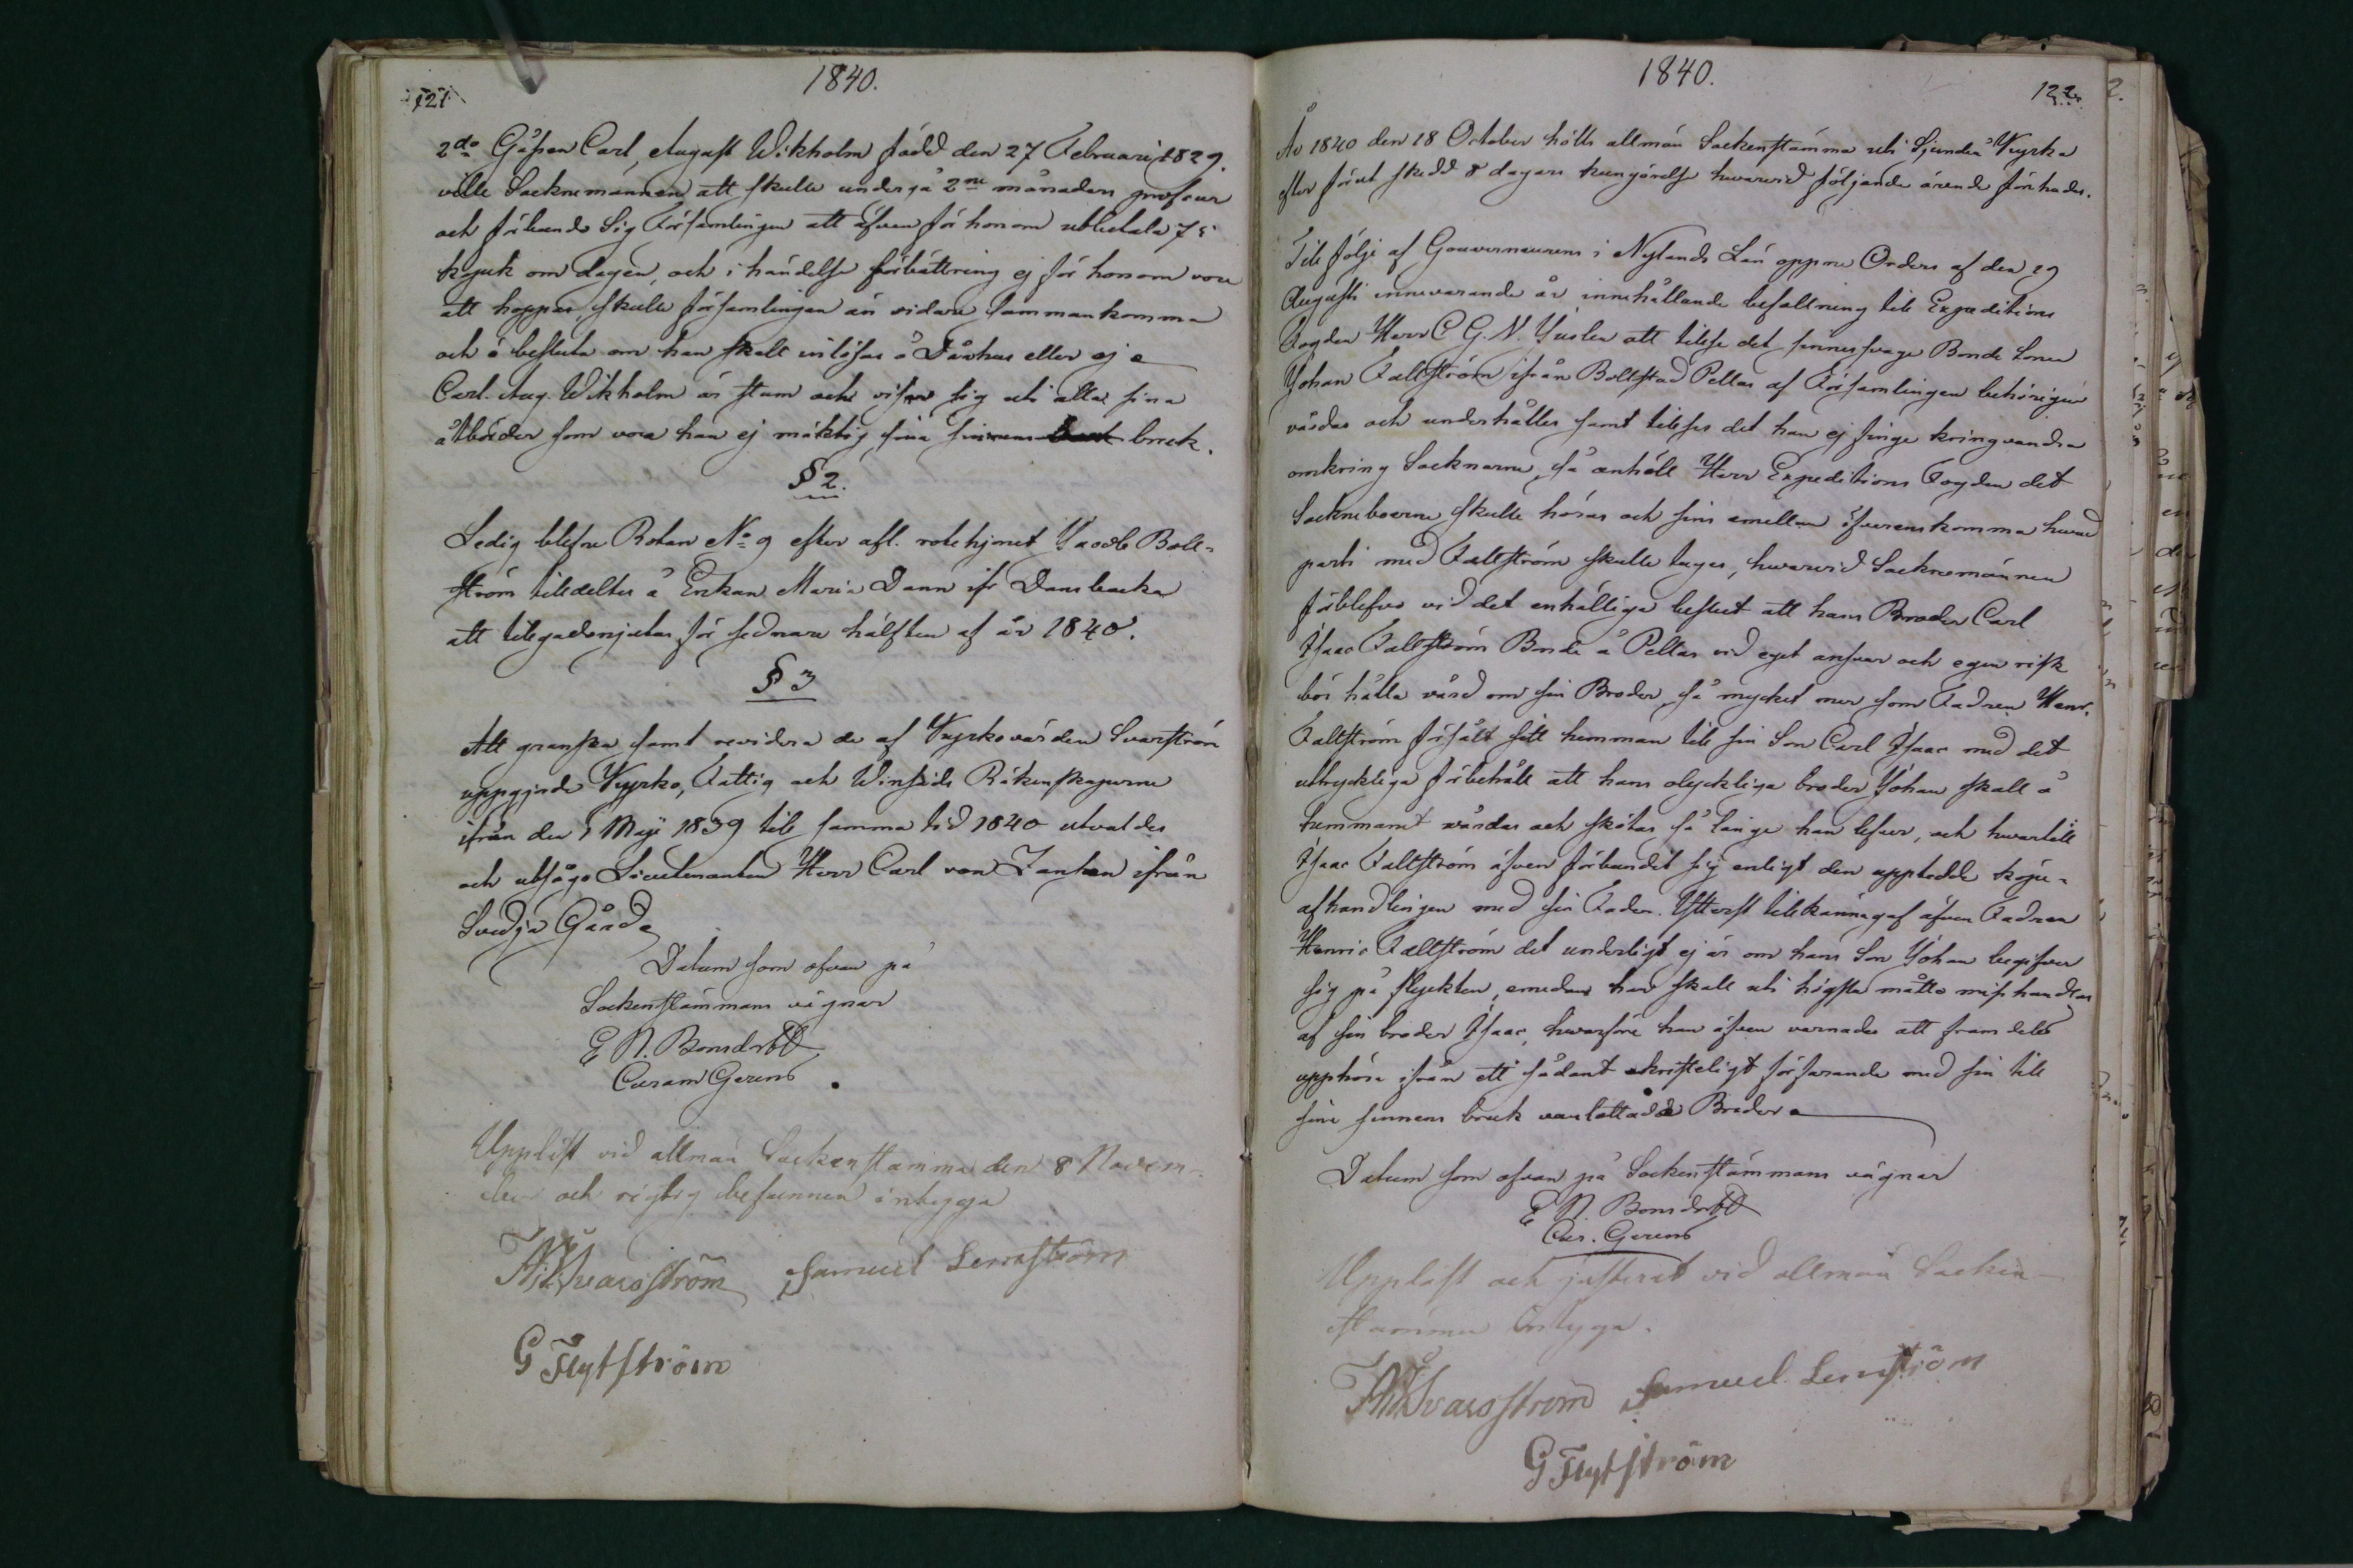 1840.
121
2do Gåssen Carl August Wikholm född den 27 Februari 1829.
ville Socknemännen att skulle undergå 2ne månaders profcur
och förbands Sig Församlingen att äfven för honom utbetala 75
kopek om dagen, och i händelse förbättring ej för honom vore
att hoppas, skulle församlingen än vidare sammankomma
och besluta om han skall inlösas å Dårhus eller ej
Carl. Aug. Wikholm är stum och visar sig uti alla sina
åtbörder som vore han ej mäktig sina sinnens bruk.
§ 2.
Ledig blefne Rotan No 9 efter afl. rotehjonet Jacob Boll-
ström tilldeltes å Enkan Maria Dann ifr Dansbacka
att tillgodonjutas för sednare hälften af år 1840.
§ 3
Att granska samt revidera de af Kyrkovärden Svarström
uppgjorde Kyrko, Fattig och Winhäds Räkenskaperne
ifrån den 1 Maji 1839 till samma tid 1840 utvaldes
och utsågs Lieutenanten Herr Carl von Zansen ifrån
Svidja Gård
Datum som ofvan på
Sockenstämmans vägnar
E N. Bonsdorff
Curam Gerens
Uppläst vid allmän Sockenstämma den 8 Novem-
ber och rigtig befunnen intyga
Svarsström Samuel Lernström
G Flytström
1840.
122
År 1840 den 18 October hölls allmän Sockenstämma uti Sjundeå Kyrka
efter förut skedd 8 dagars kungörelse hwarvid följande ärende förehades.
Till följe af Gouverneurens i Nylands Län öppne Orders af den 29
Augusti innevarande år innehållande befallning till Expeditions
Fogden Herr C G. N. Juslen att tillse det sinnesvage Bonde Sonen
Johan Fallström ifrån Bollstad Pellas af Församlingen behörigen
vårdas och underhålles samt tillses det han ej finge kringvandra
omkring Socknarne, så anhöll Herr Expeditions Fogden det
Sockneboerne skulle höras och sins emellan öfverenskomma hvad
parti med Fallström skulle tagas, hwarvid Socknemännen
förblefvo vid det enhälliga beslut att hans Broder Carl
Isaac Fallström Bonde å Pellas vid eget ansvar och egen risk
bör hålla vård om sin Broder, så mycket mer som Fadren Henr.
Fallström försålt sitt hemman till sin Son Carl Isaac med det
uttryckliga förbehåll att hans olyckliga broder Johan skall å
hemmanet vårdas och skötas så länge han lefver, och hwartill
Isaac Fallström äfven förbundit sig enligt den uppledde köpe-
afhandlingen med sin Fader. Ytterst tillkännagaf äfven Fadren
Henric Fallström det underligt ej är om hans Son Johan begifver
sig på flyckten, emedan han skall uti högsta måtto misshandlas
af sin broder Isaac, hwarföre han äfven varnades att framdeles
upphöra ifrån ett sådant okristeligt förfarande med sin till
sine sinnens bruk vanlottade Broder
Datum som ofvan på Sockenstämmans vägnar
E N. Bonsdorff
Cur. Gerens
Uppläst och justerat vid allmän Socken-
stämma intyga.
Svarsström Samuel Lernström
G Flytström